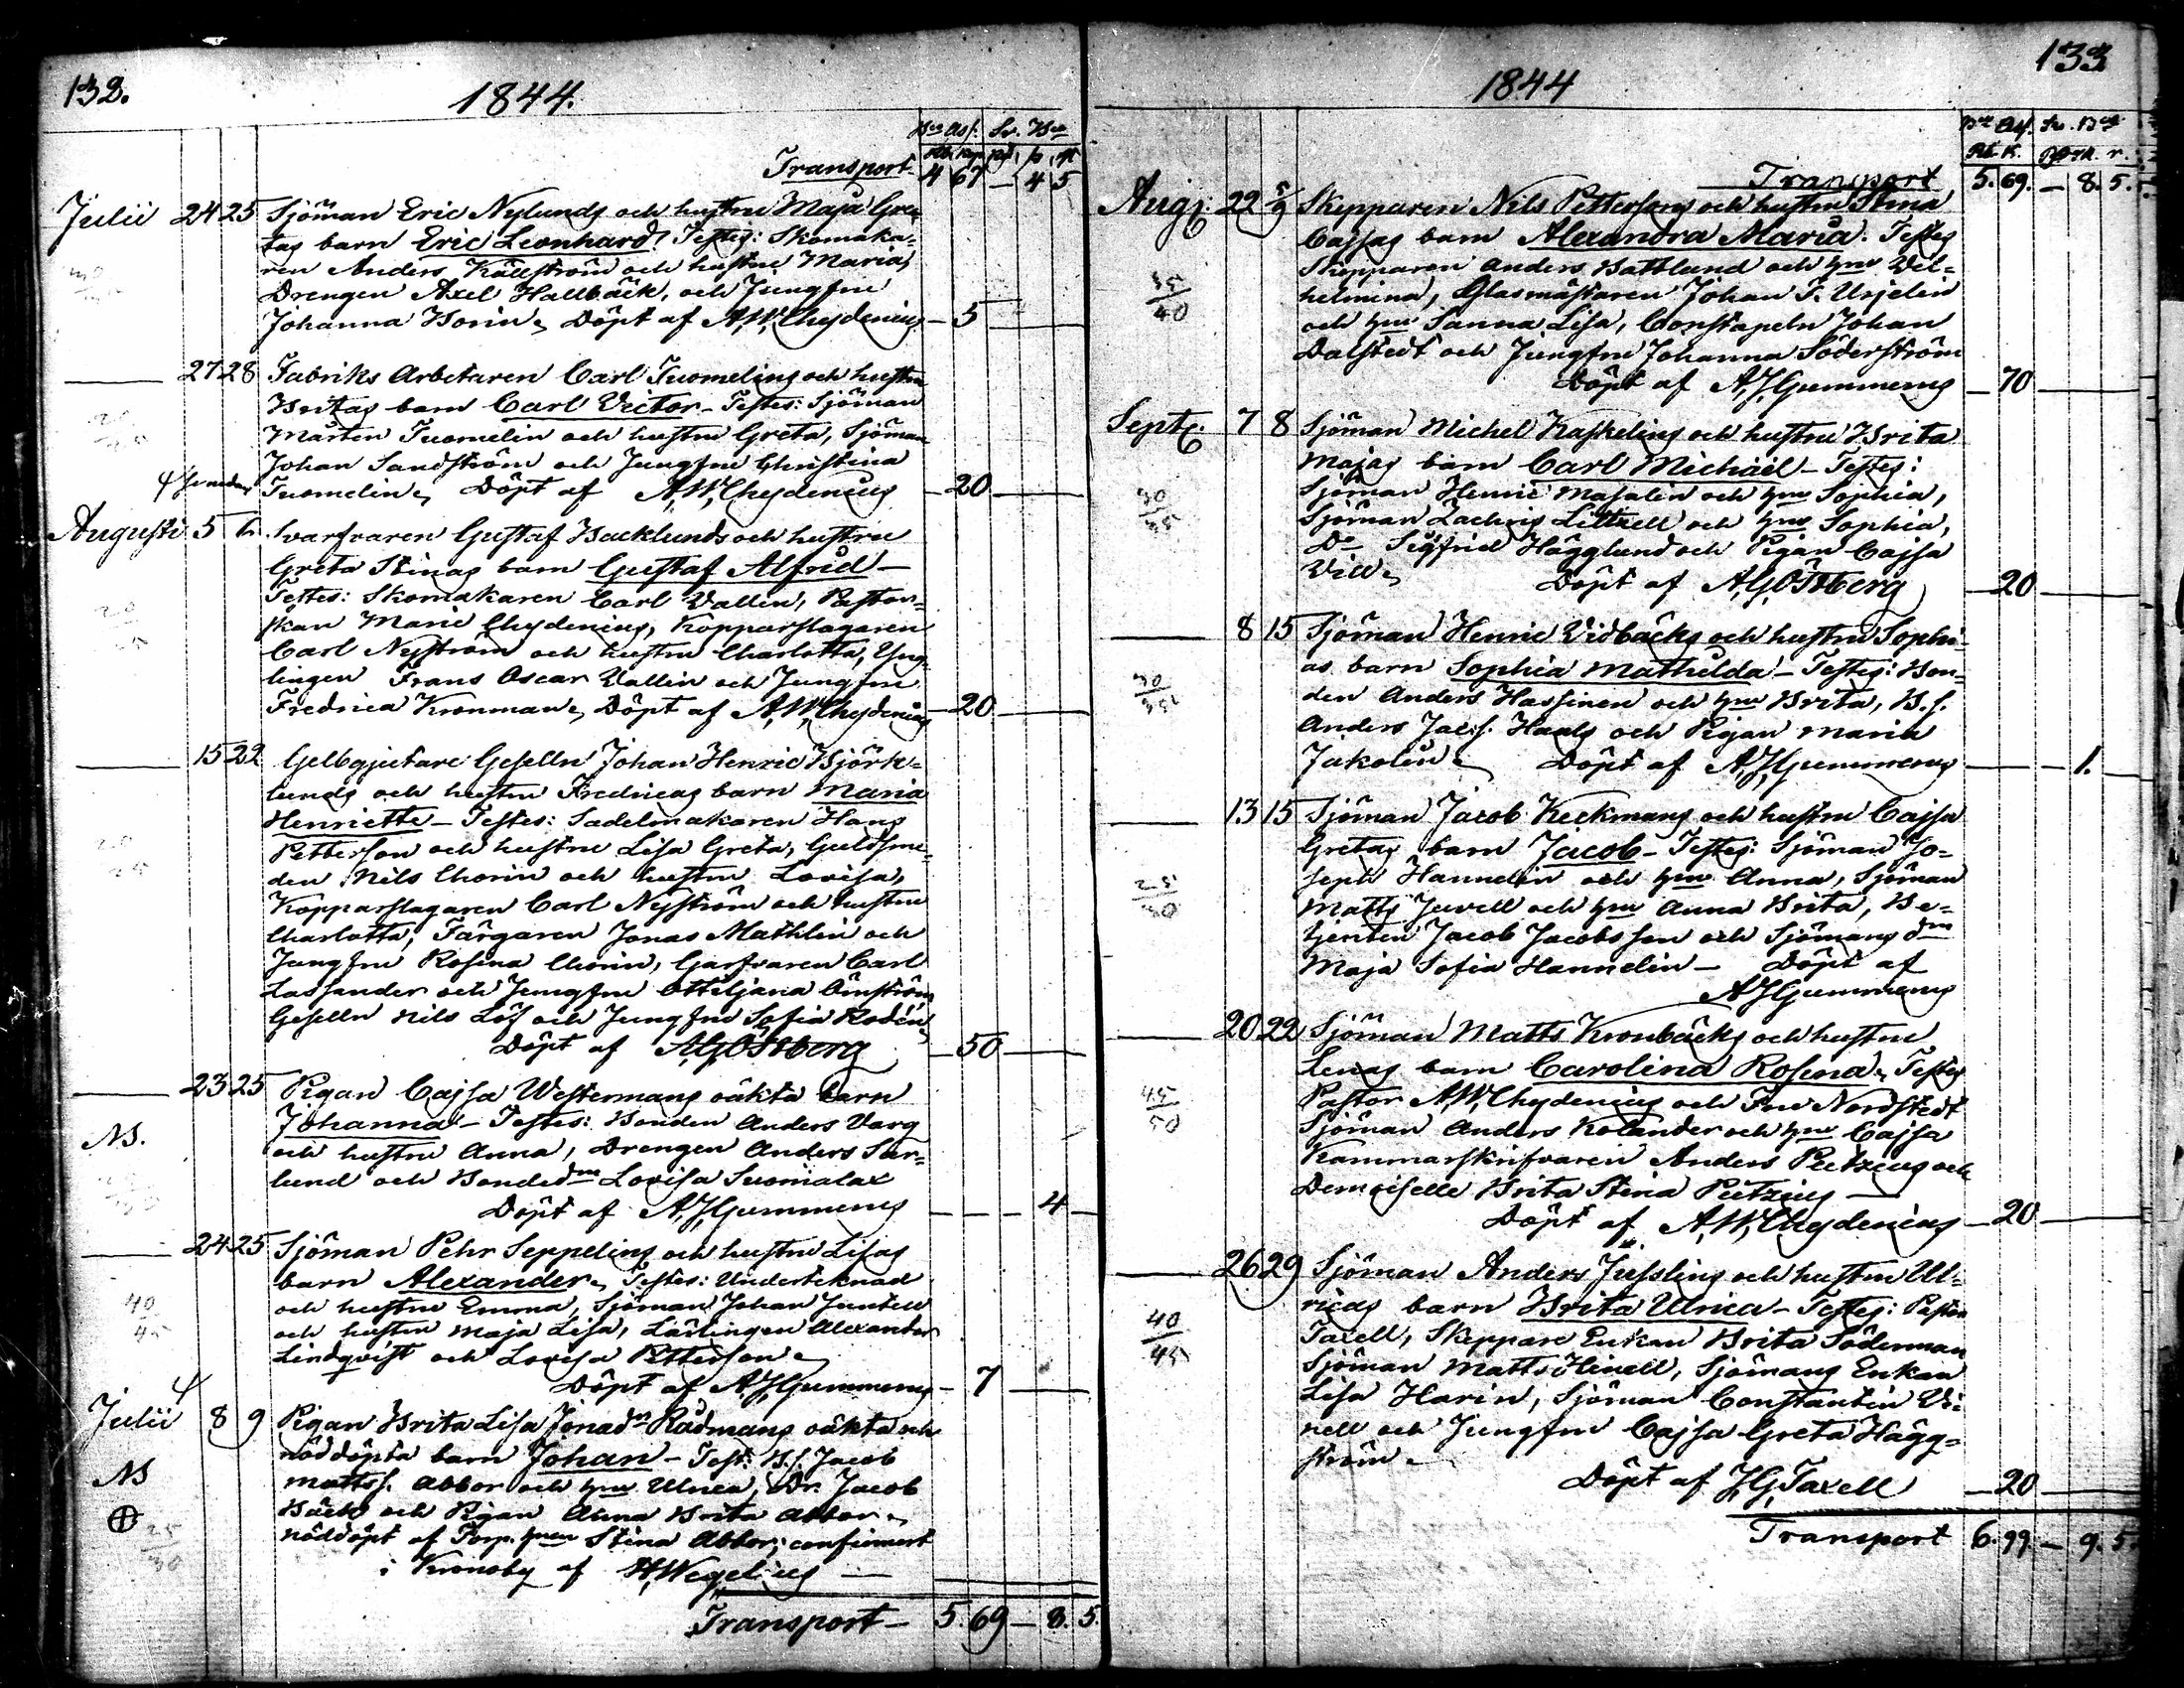 132.
1844.
Bco Ass. Sv. Bco
Transport 4 67 — 4 5
Julii 24 25 Sjöman Eric Nylunds och hustru Maja Gre=
tas barn Eric Leonhard. Testes: Skomaka=
ren Anders Källström och hustru Maria,
Drengen Axel Hallbäck, och Jungfru
Johanna Horin. Döpt af A,W,Chydenius — 5 —
— 27 28 Fabriks Arbetaren Carl Tuomelins och hustru
Britas barn Carl Victor — Testes: Sjöman
Mårten Tuomelin och hustru Greta, Sjöman
Johan Sandström och Jungfru Christina
Tuomelin. Döpt af A,W,Chydenius — 20 —
Augusti 5 6 Svarfvaren Gustaf Backlunds och hustru
Greta Stinas barn Gustaf Alfrid —
Testes: Skomakaren Carl Vallin, Pastor=
skan Marie Chydenius, Kopparslagaren
Carl Nyström och hustru Charlotta, Yng=
lingen Frans Oscar Vallin och Jungfru
Fredrica Kronman. Döpt af A,W,Chydenius — 20 —
— 15 22 Gelbgjutare Geselln Johan Henric Björk=
lunds och hustru Fredricas barn Maria
Henriette — Testes: Sadelmakaren Hans
Petterson och hustru Lisa Greta, Guldsme=
den Nils Chorin och hustru Lovisa,
Kopparslagaren Carl Nyström och hustru
Charlotta, Färgaren Jonas Mathlin och
Jungfru Rosina Chorin, Garfvaren Carl
Lassander och Jungfru Ottiljana Önström
Geselln Nils Löf och Jungfru Sofia Rodén
Döpt af A,G,Östberg — 50 —
— 23 25 Pigan Cajsa Westermans oäkta barn
NB. Johanna — Testes: Bonden Anders Varg
och hustru Anna, Drengen Anders Sur=
lund och Bondedm Lovisa Suomalax
Döpt af A,J,Gummerus — — — 4 —
— 24 25 Sjöman Pehr Seppelins och hustru Lisas
barn Alexander. Testes: Underteknad
40 och hustru Emma, Sjöman Johan Juntell
45 och hustru Maja Lisa, Lärlingen Alexander
Lindqvist och Lovisa Petterson.
Döpt af A,J,Gummerus — 7 —
Julii 8 9 Pigan Brita Lisa Jonadr Rådmans oäkta och
nöddöpta barn Johan — Test: B.s. Jacob
NB Mattss. Abbor och hru Ulrica, Dr. Jacob
Bäck och Pigan Anna Brita Abbor.
25 nöddöpt af Torp.hrun Stina Abbor; confirmert
30 i Kronoby af H,Wegelius —
Transport — 5. 69 — 8. 5.
133
1844
Bco Ass. Sv. Bco
Rb. K.
Transport 5. 69. — 8. 5.
Augs: 22 5/9 Skepparen Nils Pettersons och hustru Stina
Cajsas barn Alexandra Maria. Testes
35 Skepparen Anders Battlund och hru Vil=
40 helmina, Glasmästaren Johan F. Ursjelin
och hru Sanna Lisa, Constapeln Johan
Dalstedt och Jungfru Johanna Söderström
Döpt af A,J,Gummerus — 70 —
Septr. 7 8 Sjöman Michel Kaskelins och hustru Brita
Majas barn Carl Michaël — Testes:
Sjöman Henric Masalin och hru Sophia,
Sjöman Zachris Littxell och hru Sophia,
Do Sigfrid Hägglund och Pigan Cajsa
Vill. Döpt af A,G,Östberg — 20 —
— 8 15 Sjöman Henric Vidbäcks och hustru Sophi=
as barn Sophia Mathilda — Testes: Bon=
den Anders Hassinen och hru Brita, B.s.
Anders Jacs. Haals och Pigan Maria
Jakolin. Döpt af A,J,Gummerus — — 1.
— 13 15 Sjöman Jacob Keckmans och hustru Cajsa
Gretas barn Jacob — Testes: Sjöman Jo=
seph Hannelin och hru Anna, Sjöman
Matts Juvell och hru Anna Brita, Be=
tjenten Jacob Jacobsson och Sjömans dm
Maja Sofia Hannelin — Döpt af
A,J,Gummerus
— 20 22 Sjöman Matts Kronbäcks och hustru
Lenas barn Carolina Rosina. Testes
45 Pastor A,W,Chydenius och Fru Nordstedt
50 Sjöman Anders Kolander och hru Cajsa
Kammarskrifvaren Anders Peitzius och
Demoiselle Brita Stina Peitzius —
Döpt af A,W,Chydenius — 20 —
— 26 29 Sjöman Anders Jusslins och hustru Ul=
ricas barn Brita Ulrica — Testes: Pastor
40 Taxell, Skeppare Enkan Brita Söderman
45 Sjöman Matts Hinell, Sjömans Enkan
Lisa Harin, Sjöman Constantin Vi=
nell och Jungfru Cajsa Greta Hägg=
ström.
Döpt af J,G,Taxell — 20 —
Transport 6. 99. — 9. 5.